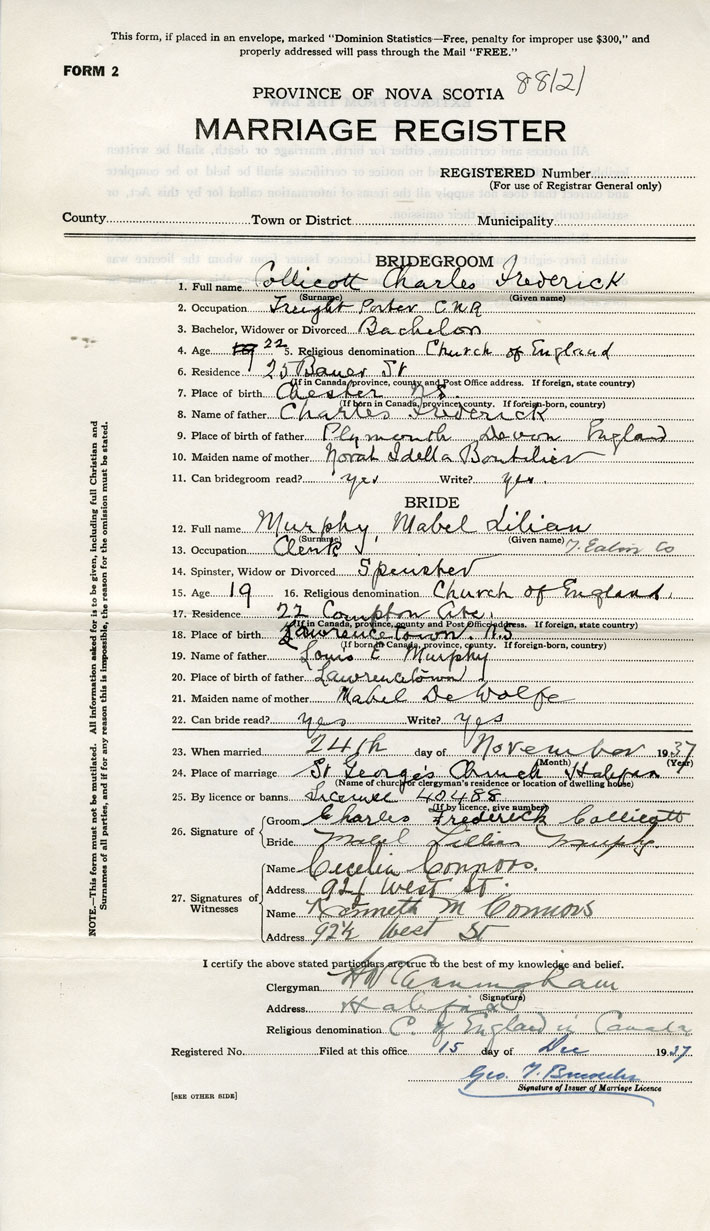 This form, if placed in an envelope, marked "Dominion Statistics—Free, penalty for improper use $300," and
properly addressed will pass through the Mail "FREE."
FORM 2
PROVINCE OF NOVA SCOTIA
MARRIAGE REGISTER
REGISTERED Number
(For use of Registrar General only)
County Town or District Municipality
BRIDEGROOM
1. Full name Collicott Charles Frederick
(Surname) (Given name)
2. Occupation Freight Porter C.N.R
3. Bachelor, Widower or Divorced Bachelor
4. Age 22 5. Religious denomination Church of England
6. Residence 25 Bauer St
(If in Canada, province, county and Post Office address. If foreign, state country)
7. Place of birth Chester N.S.
(If born in Canada, province, county. If foreign-born, country)
8. Name of father Charles Frederick
9. Place of birth of father Plymouth Devon England
10. Maiden name of mother Norah Idella Boutilier
11. Can bridegroom read? yes Write? yes.
BRIDE
12. Full name Murphy, Mabel Lilian
(Surname) (Given name)
13. Occupation Clerk T. Eaton Co
14. Spinster, Widow or Divorced Spinster
15. Age 19 16. Religious denomination Church of England.
17. Residence 22 Compton Ave.
(If in Canada, province, county and Post Office address. If foreign, state country)
18. Place of birth Lawrencetown. N.S
(If born in Canada, province, county. If foreign-born, country)
19. Name of father Louis E Murphy
20. Place of birth of father Lawrencetown
21. Maiden name of mother Mabel DeWolfe
22. Can bride read? yes Write? yes
23. When married 24th day of November 1937
(Month) (Year)
24. Place of marriage St George's Church Halifax
(Name of church or clergyman's residence or location of dwelling house)
25. By licence or banns License 40488
(If by licence, give number)
26. Signature of Groom Charles Frederick Collicott
Bride Mabel Lillian Murphy.
27. Signatures of Witnesses
Name Cecelia Connors.
Address 92½ West St.
Name Kenneth M Connors
Address 92½ West St
I certify the above stated particulars are true to the best of my knowledge and belief.
Clergyman H W Cunningham
(Signature)
Address Halifax
Religious denomination C. of England in Canada
Registered No. Filed at this office 15 day of Dec 1937
Geo. T.
Signature of Issuer of Marriage Licence
[SEE OTHER SIDE]
NOTE.—This form must not be mutilated. All information asked for is to be given, including full Christian and
Surnames of all parties, and if for any reason this is impossible, the reason for the omission must be stated.